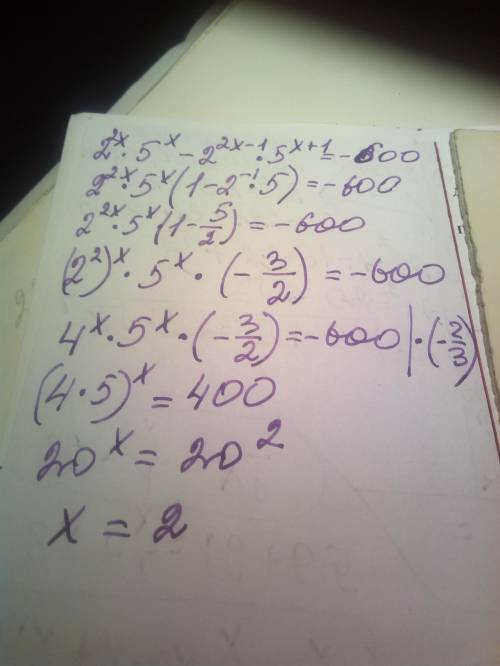 2^{2x} · 5^x - 2^{2x-1} · 5^{x+1} = -600
2^{2x} · 5^x (1 - 2^{-1} · 5) = -600
2^{2x} · 5^x (1 - \frac{5}{2}) = -600
(2^2)^x · 5^x · (-\frac{3}{2}) = -600
4^x · 5^x · (-\frac{3}{2}) = -600 | · (-\frac{2}{3})
(4 · 5)^x = 400
20^x = 20^2
x = 2